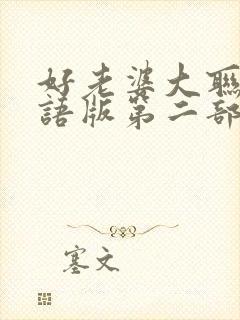 好老婆大聯
語版第二部
塞文